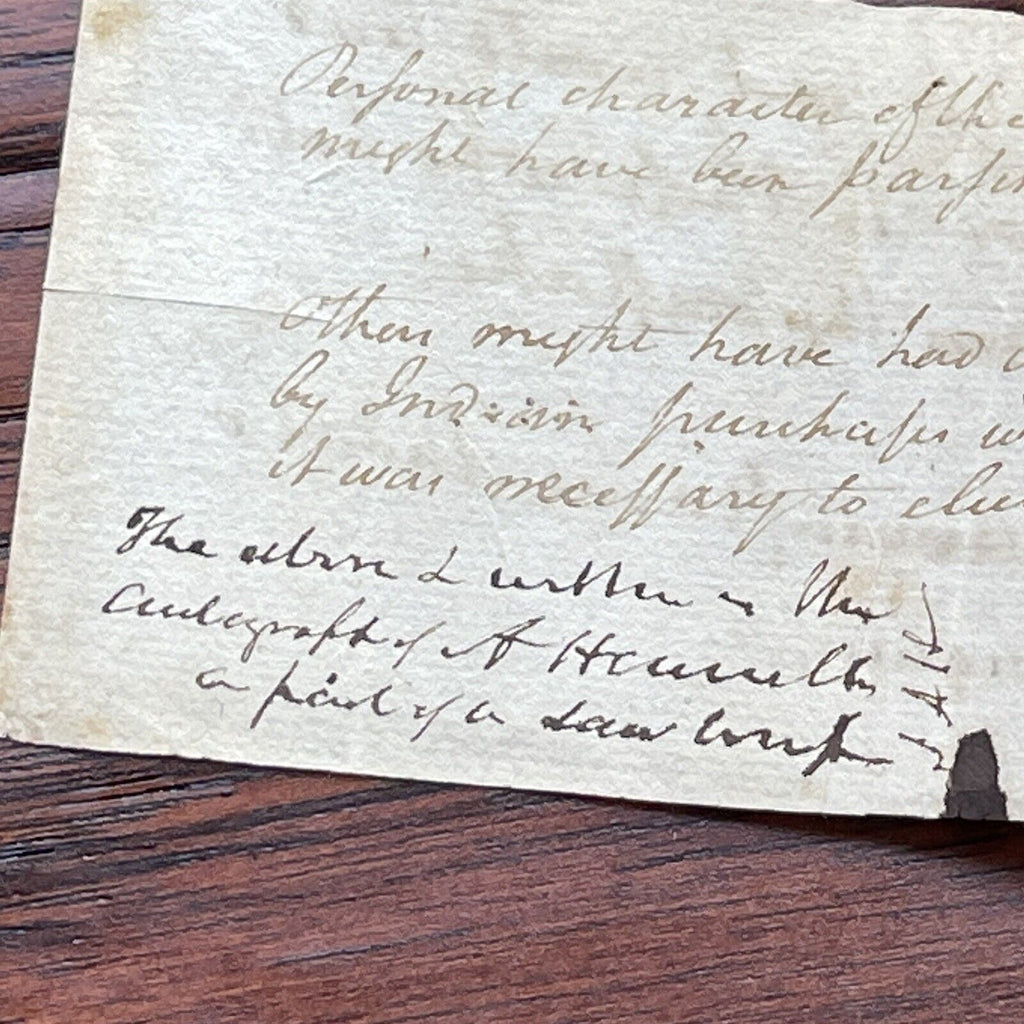 Personal character of the
might have been
They might have had
by Indian purchases
it was necessary to
The above & within is the
autograph of A Hamilton
a part of a Law brief